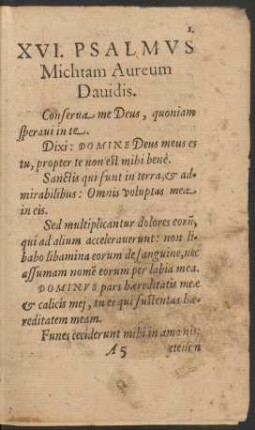 1.
XVI. PSALMVS
Michtam Aureum
Dauidis.
Conserua me Deus, quoniam
speraui in te.
Dixi: DOMINE Deus meus es
tu, propter te non est mihi benè.
Sanctis qui sunt in terra, & ad-
mirabilibus: Omnis voluptas mea
in eis.
Sed multiplicantur dolores eorũ,
qui ad alium accelerauerunt: non li-
babo libamina eorum de sanguine, nec
assumam nomẽ eorum per labia mea.
DOMINVS pars hæreditatis meæ
& calicis mej, tu es qui sustentas hæ-
reditatem meam.
Funes ceciderunt mihi in amœnis;
A5
etenim